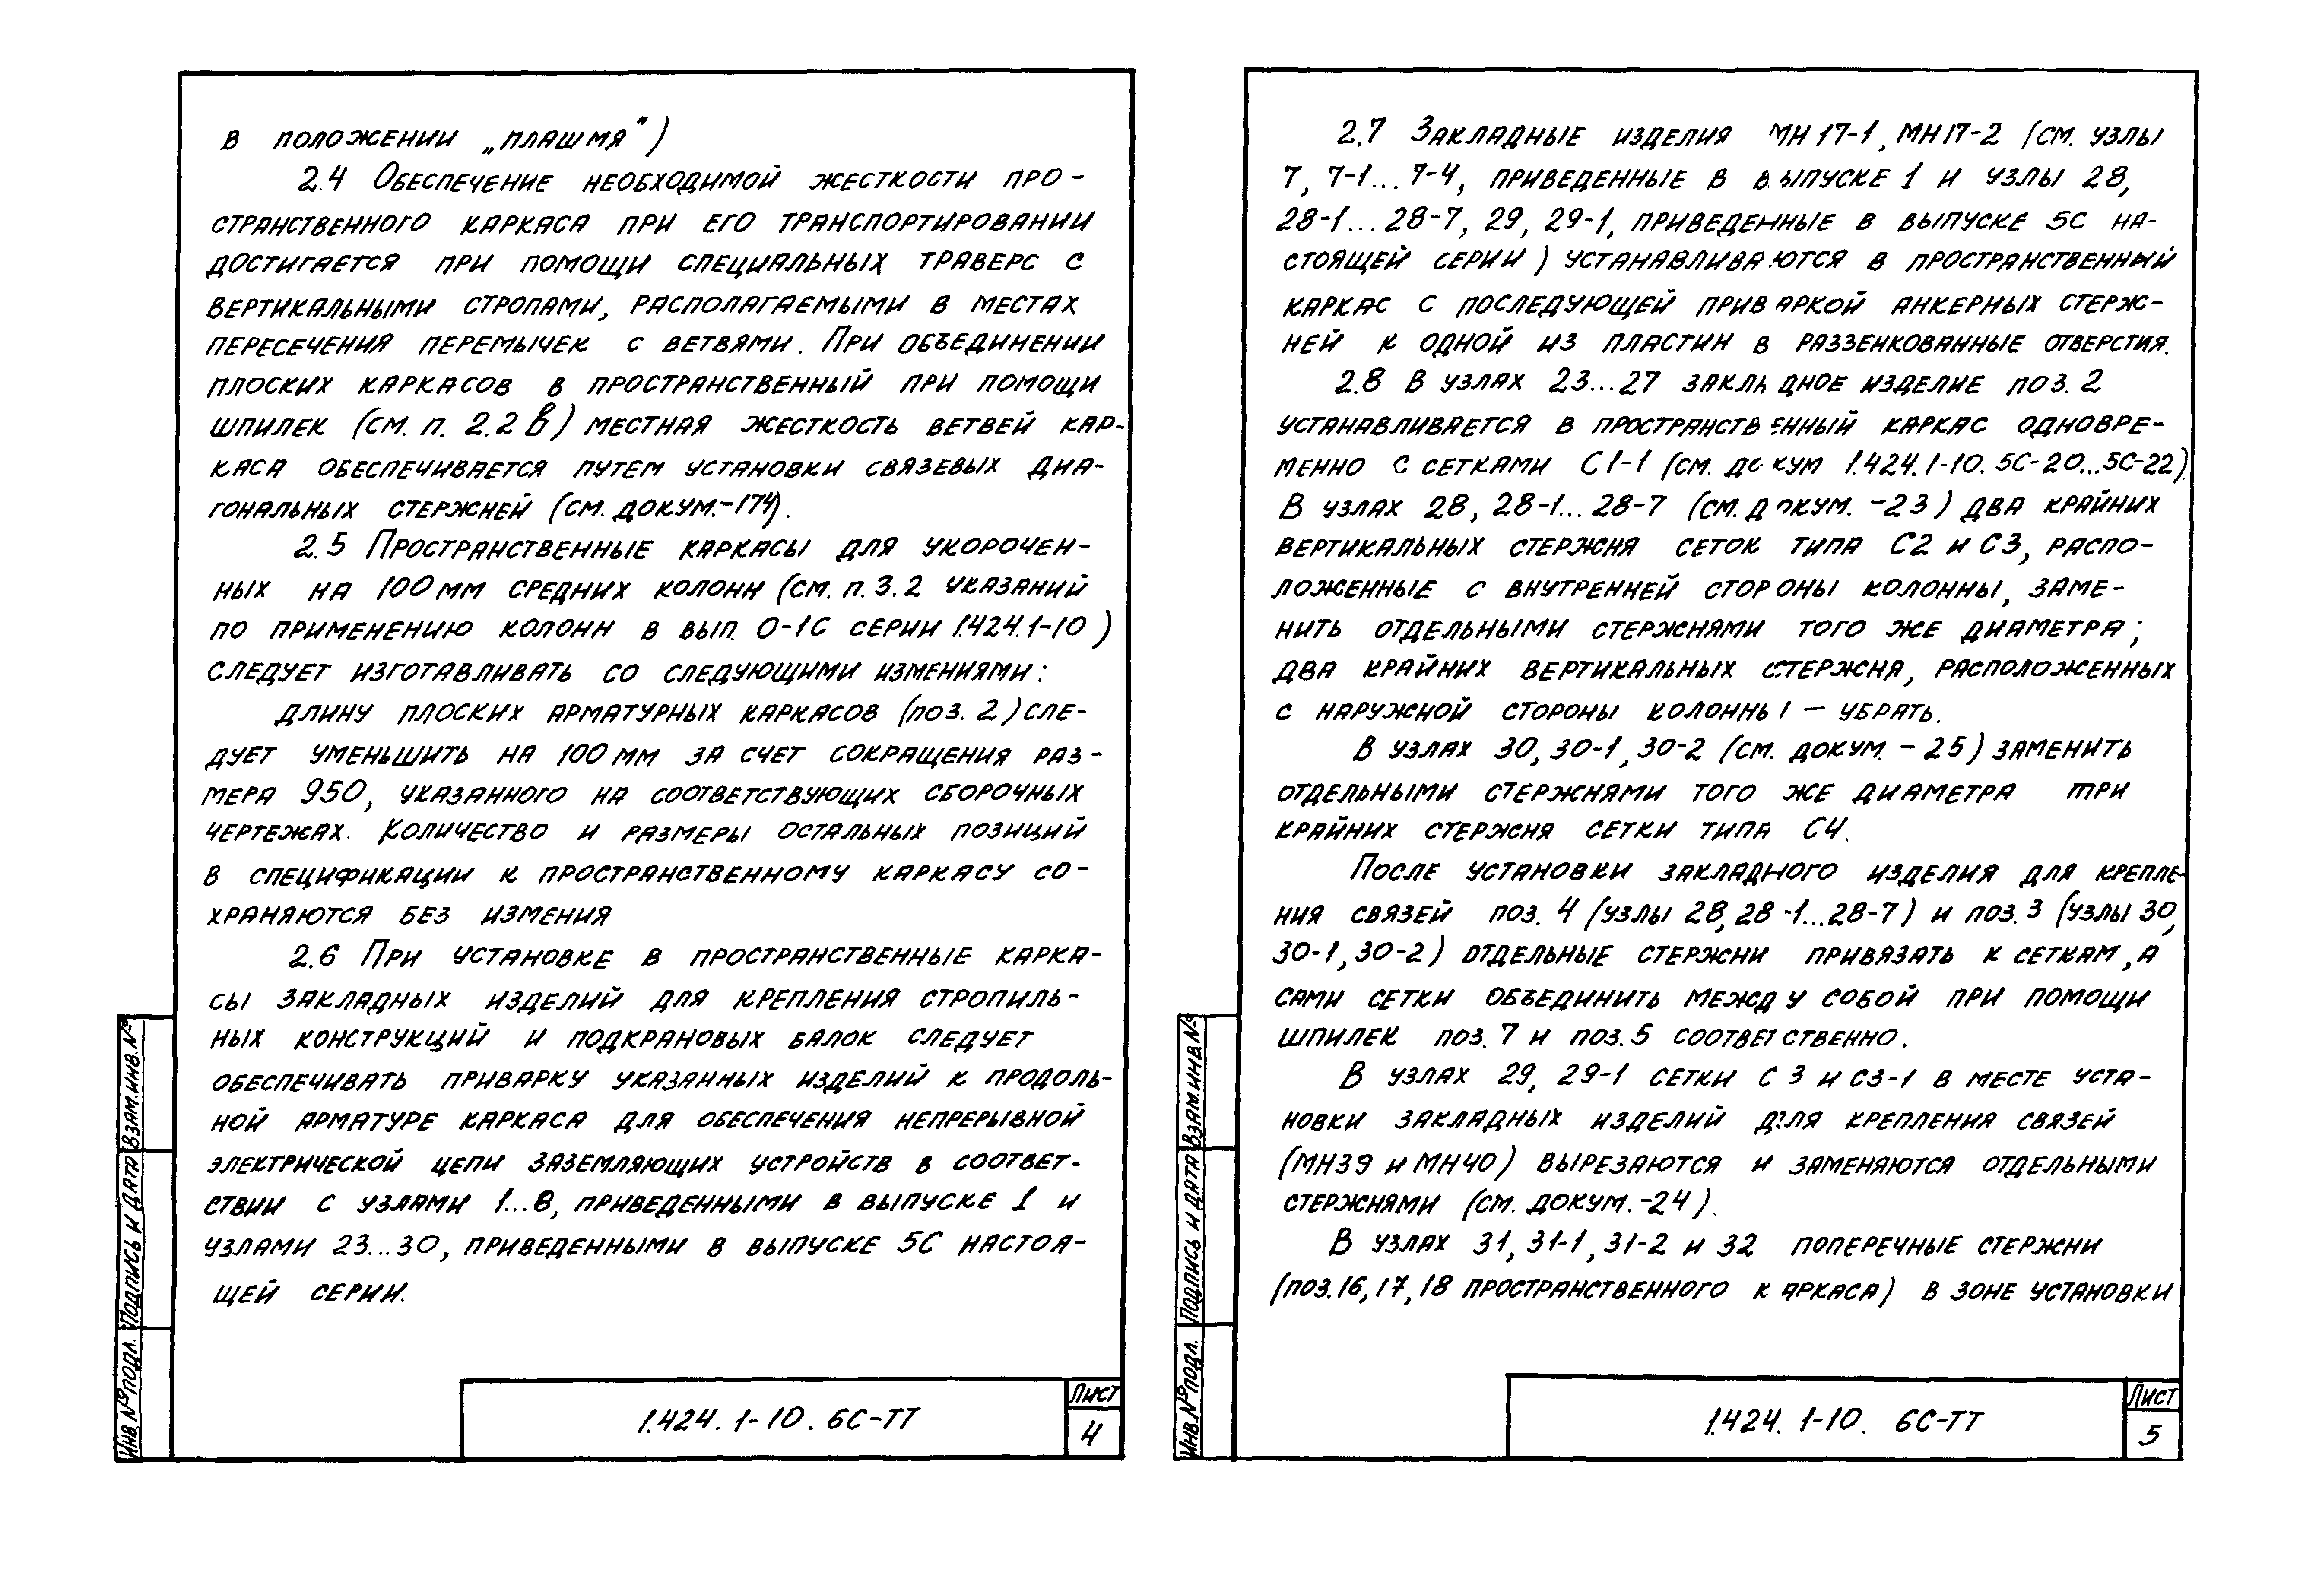 в положении „плашмя")
2.4 Обеспечение необходимой жесткости про-
странственного каркаса при его транспортировании
достигается при помощи специальных траверс с
вертикальными стропами, располагаемыми в местах
пересечения перемычек с ветвями. При объединении
плоских каркасов в пространственный при помощи
шпилек (см. п. 2.2 в) местная жесткость ветвей кар-
каса обеспечивается путем установки связевых диа-
гональных стержней (см. докум.-174).
2.5 Пространственные каркасы для укорочен-
ных на 100 мм средних колонн (см. п. 3.2 указаний
по применению колонн в вып. 0-1С серии 1.424.1-10)
следует изготавливать со следующими измениями:
длину плоских арматурных каркасов (поз. 2) сле-
дует уменьшить на 100 мм за счет сокращения раз-
мера 950, указанного на соответствующих сборочных
чертежах. Количество и размеры остальных позиций
в спецификации к пространственному каркасу со-
храняются без измения
2.6 При установке в пространственные карка-
сы закладных изделий для крепления стропиль-
ных конструкций и подкрановых балок следует
обеспечивать приварку указанных изделий к продоль-
ной арматуре каркаса для обеспечения непрерывной
электрической цепи заземляющих устройств в соответ-
ствии с узлами 1...8, приведенными в выпуске 1 и
узлами 23...30, приведенными в выпуске 5С настоя-
щей серии.
Инв. № подл. Подпись и дата Взам. инв. №
1.424.1-10. 6С-ТТ
Лист
4
2.7 Закладные изделия МН17-1, МН17-2 (см. узлы
7, 7-1...7-4, приведенные в выпуске 1 и узлы 28,
28-1...28-7, 29, 29-1, приведенные в выпуске 5С на-
стоящей серии) устанавливаются в пространственный
каркас с последующей приваркой анкерных стерж-
ней к одной из пластин в раззенкованные отверстия.
2.8 В узлах 23...27 закладное изделие поз. 2
устанавливается в пространственный каркас одновре-
менно с сетками С1-1 (см. докум 1.424.1-10.5С-20...5С-22).
В узлах 28, 28-1...28-7 (см. докум. -23) два крайних
вертикальных стержня сеток типа С2 и С3, распо-
ложенные с внутренней стороны колонны, заме-
нить отдельными стержнями того же диаметра;
два крайних вертикальных стержня, расположенных
с наружной стороны колонны - убрать.
В узлах 30, 30-1, 30-2 (см. докум. - 25) заменить
отдельными стержнями того же диаметра три
крайних стержня сетки типа С4.
После установки закладного изделия для крепле-
ния связей поз. 4 (узлы 28, 28-1...28-7) и поз. 3 (узлы 30,
30-1, 30-2) отдельные стержни привязать к сеткам, а
сами сетки объединить между собой при помощи
шпилек поз. 7 и поз. 5 соответственно.
В узлах 29, 29-1 сетки С3 и С3-1 в месте уста-
новки закладных изделий для крепления связей
(МН39 и МН40) вырезаются и заменяются отдельными
стержнями (см. докум. -24).
В узлах 31, 31-1, 31-2 и 32 поперечные стержни
(поз. 16, 17, 18 пространственного каркаса) в зоне установки
Инв. № подл. Подпись и дата Взам. инв. №
1.424.1-10. 6С-ТТ
Лист
5